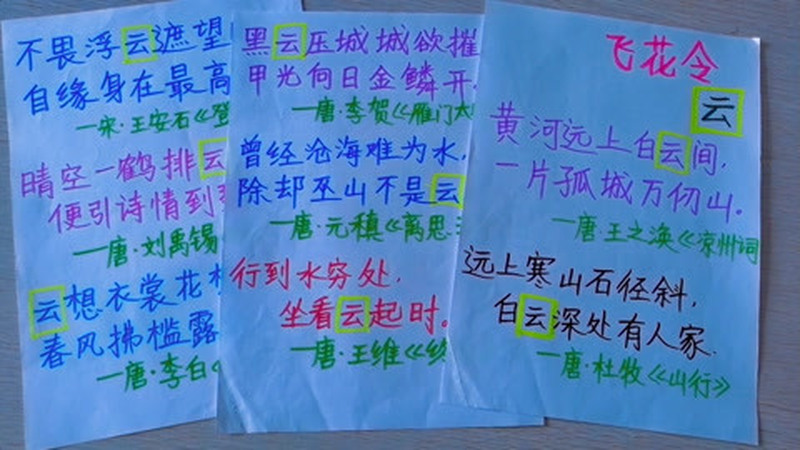 飞花令
云
黄河远上白云间,
一片孤城万仞山.
—唐·王之涣《凉州词
远上寒山石径斜,
白云深处有人家.
—唐·杜牧《山行》
黑云压城城欲摧
甲光向日金鳞开
—唐·李贺《雁门太
曾经沧海难为水,
除却巫山不是云
—唐·元稹《离思
行到水穷处,
坐看云起时.
—唐·王维《终
不畏浮云遮望
自缘身在最高
—宋·王安石《登
晴空一鹤排云
便引诗情到
—唐·刘禹锡
云想衣裳花
春风拂槛露
—唐·李白《